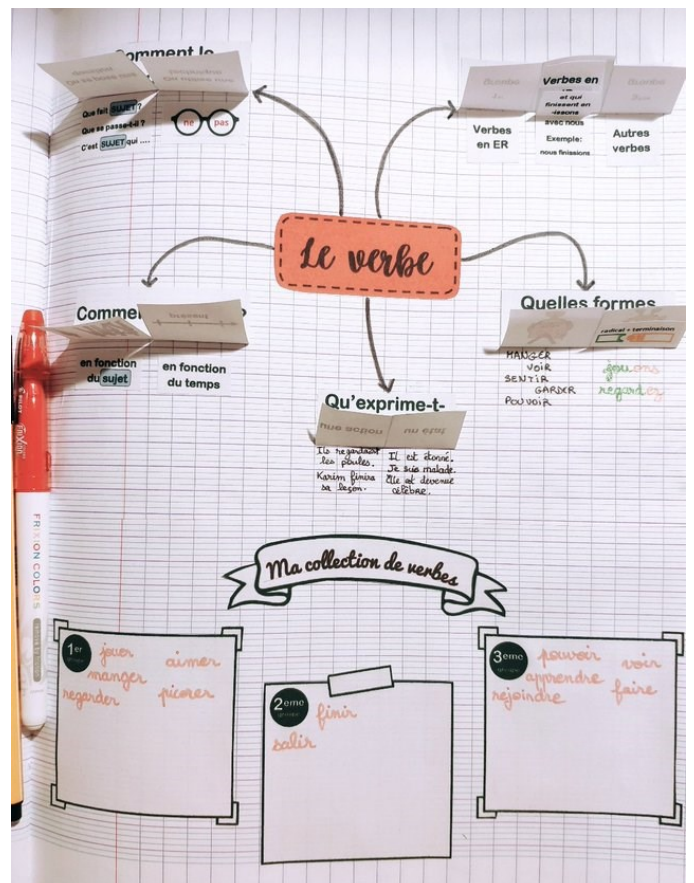 Comment le
Que fait SUJET ?
Que se passe-t-il ?
C'est SUJET qui ....
ne pas
Verbes
en ER
Verbes en
et qui
finissent en
-issons
avec nous
Exemple:
nous finissions
Autres
verbes
Le verbe
en fonction
du sujet
en fonction
du temps
Quelles formes
radical + terminaison
MANGER
VOIR
SENTIR
GARDER
POUVOIR
jouons
regardez
Qu'exprime-t-
une action
un état
Ils regardaient
les poules.
Karim finira
sa leçon.
Il est étonné.
Je suis malade.
Elle est devenue
célèbre.
PILOT
FriXion
FRIXION COLORS
Ma collection de verbes
1er
groupe
jouer aimer
manger
regarder picorer
2eme
groupe
finir
salir
3eme
groupe
pouvoir voir
apprendre
rejoindre faire